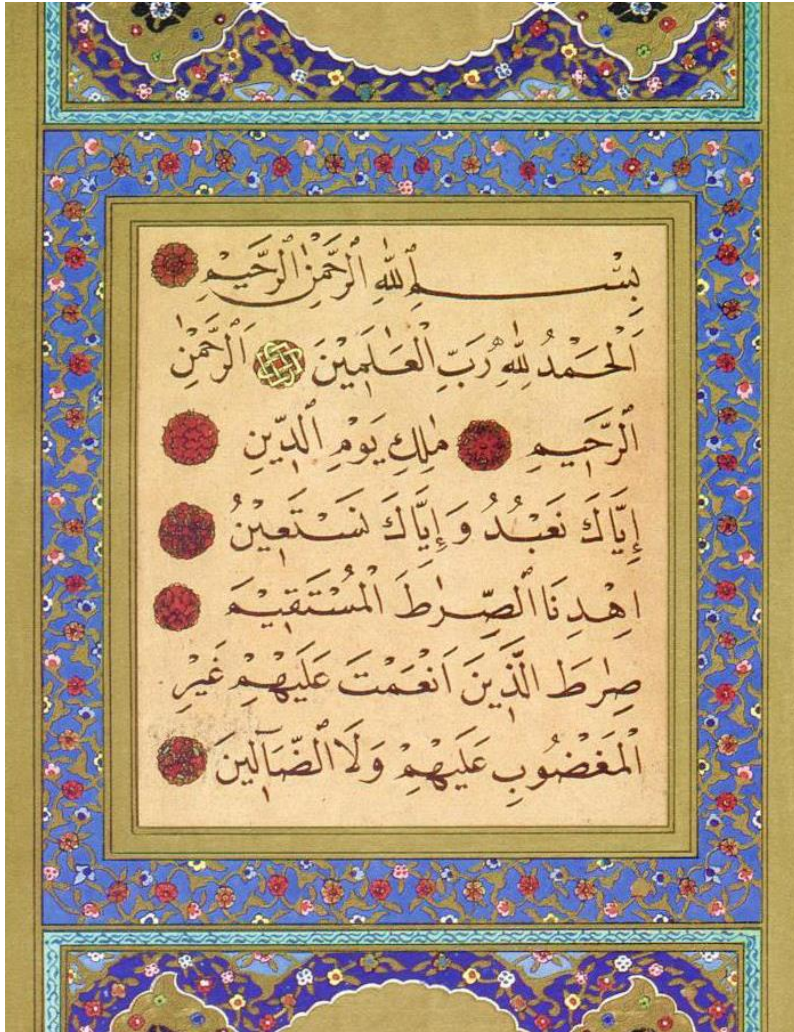 بِسْمِ ٱللّٰهِ ٱلرَّحْمٰنِ ٱلرَّحِيمِ
اَلْحَمْدُ لِلّٰهِ رَبِّ الْعَالَمِينَ اَلرَّحْمٰنِ
ٱلرَّحِيمِ مٰلِكِ يَوْمِ ٱلدِّينِ
إِيَّاكَ نَعْبُدُ وَإِيَّاكَ نَسْتَعِينُ
اِهْدِنَا ٱلصِّرٰطَ الْمُسْتَقِيمَ
صِرٰطَ الَّذِينَ اَنْعَمْتَ عَلَيْهِمْ غَيْرِ
الْمَغْضُوبِ عَلَيْهِمْ وَلَا ٱلضَّآلِّينَ